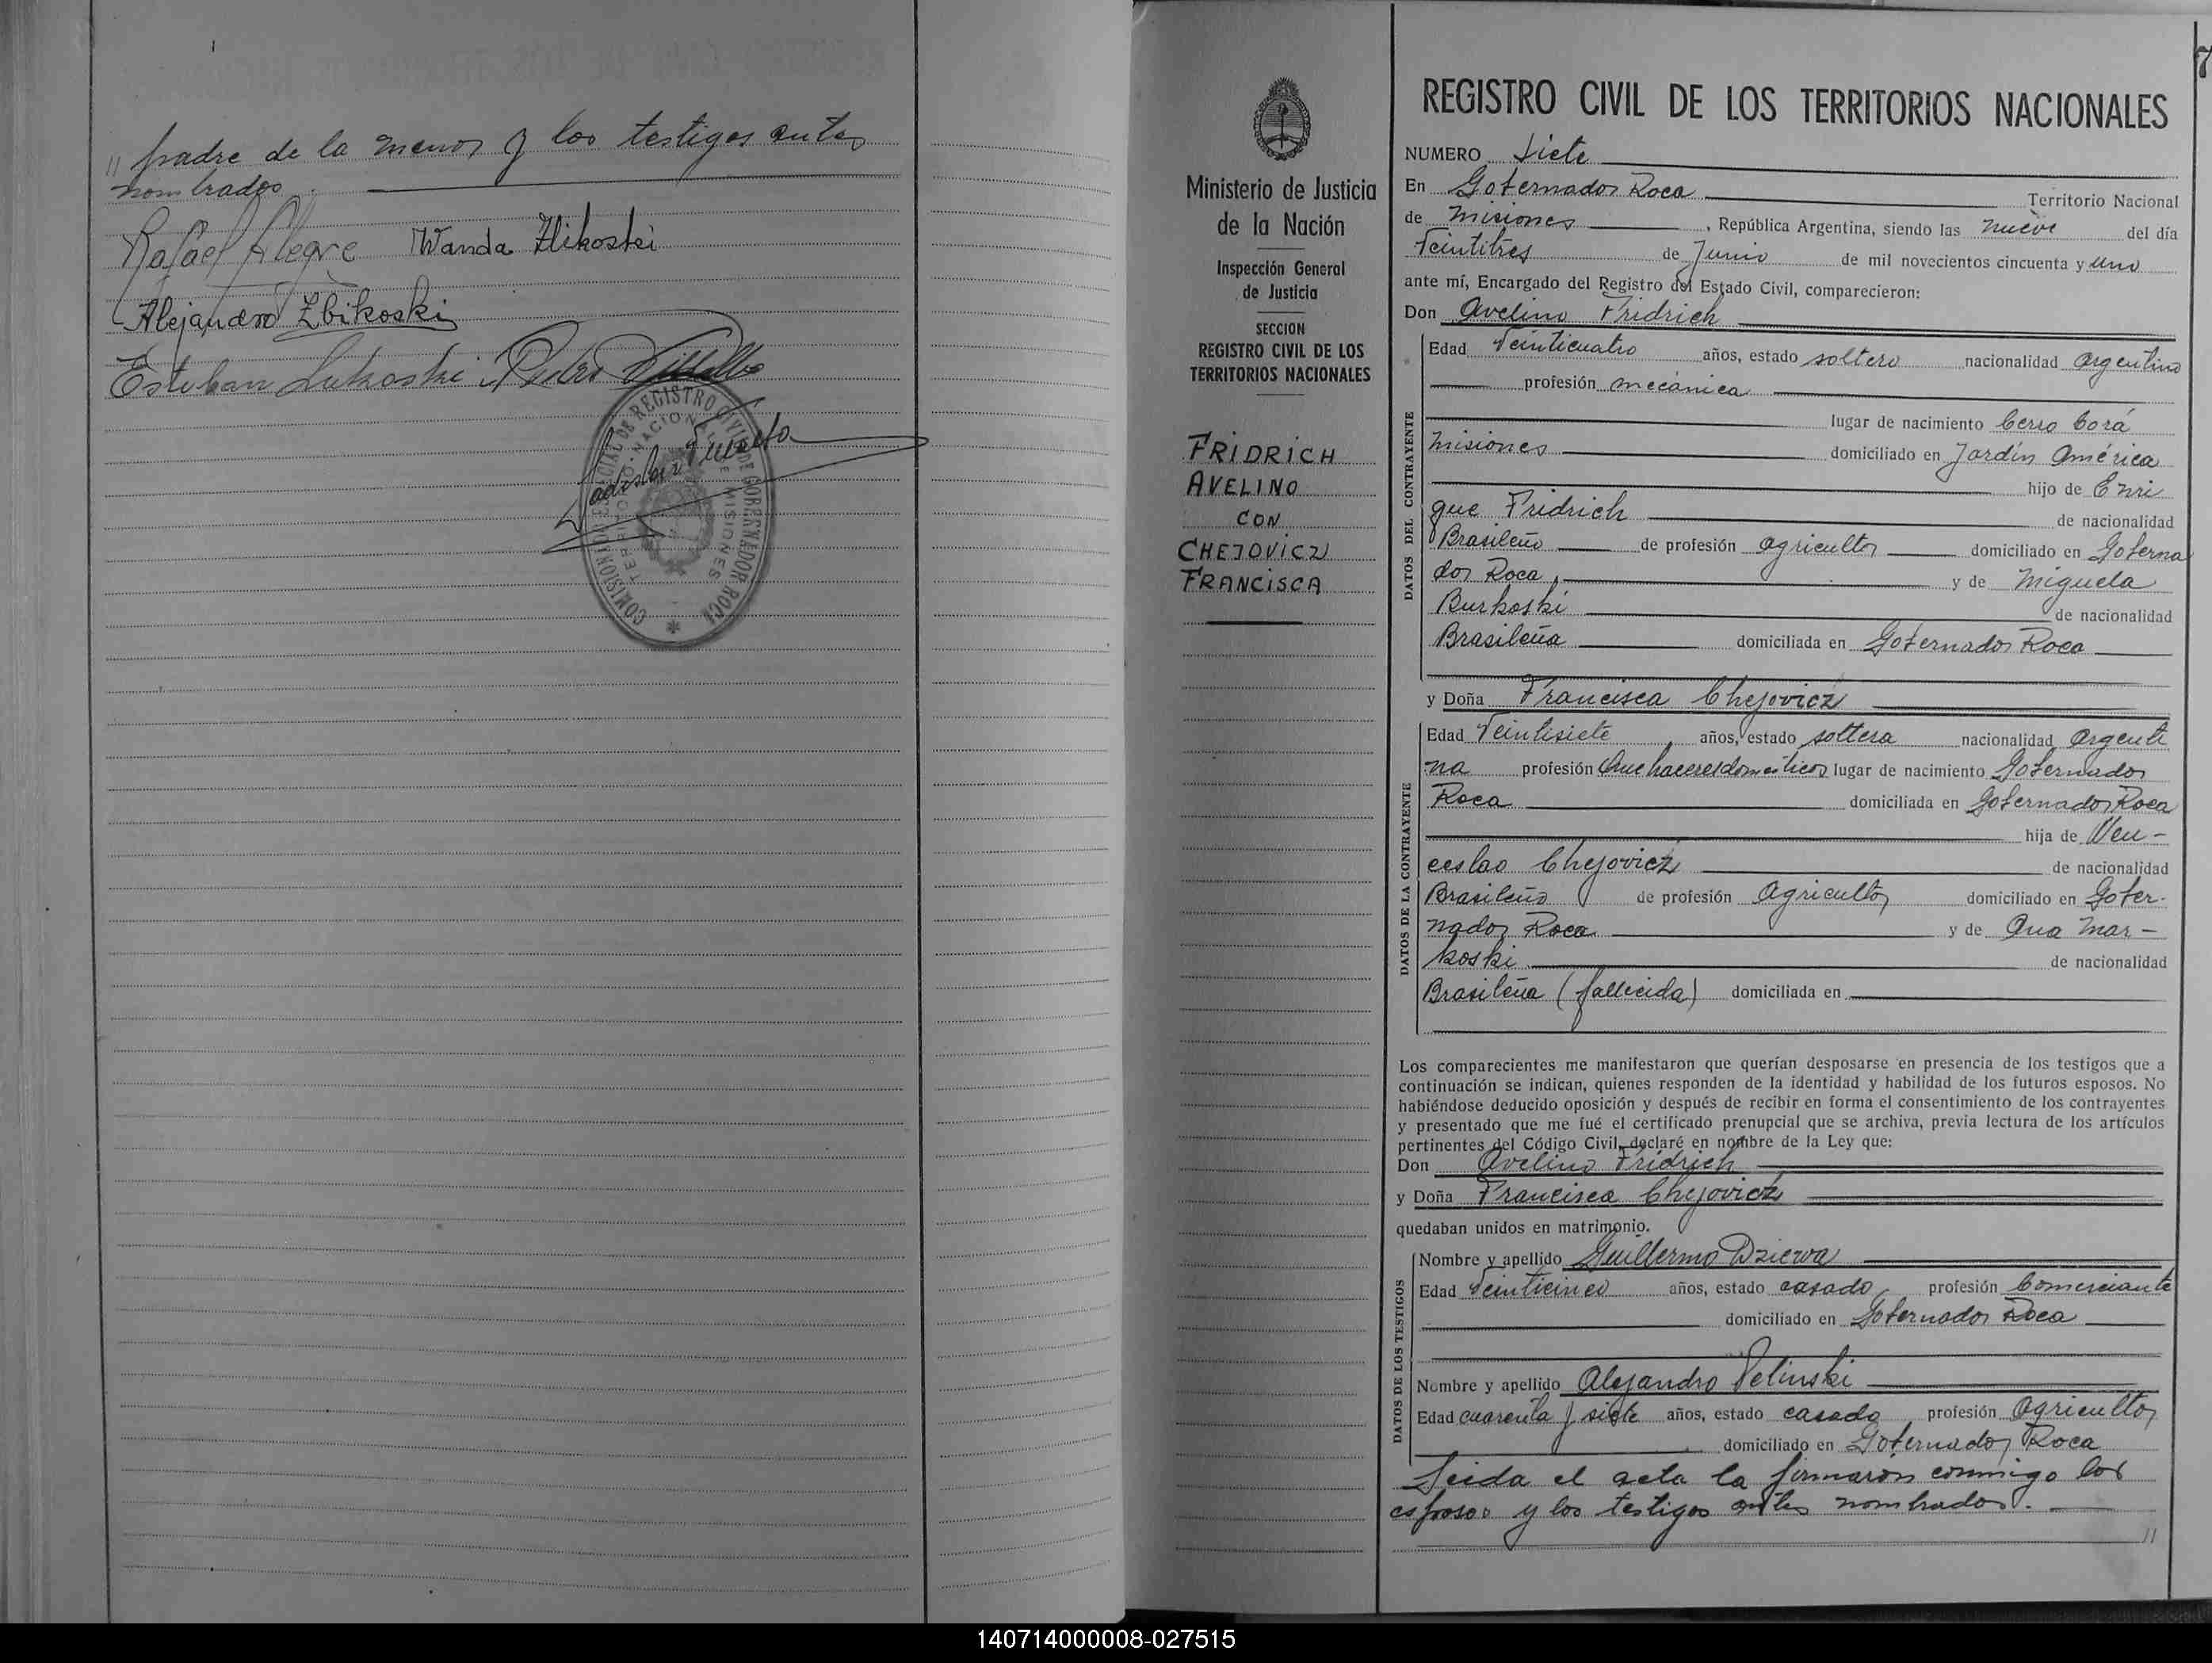 " padre de la menor y los testigos antes
nombrados.
Rafael Alegre Wanda Zbikoski
Alejandro Zbikoski
Esteban Lukoski Pedro Villalba
COMISION ESPECIAL DE REGISTRO CIVIL DE GOBERNADOR ROCA
TERRITORIO NACIONAL DE MISIONES
7
REGISTRO CIVIL DE LOS TERRITORIOS NACIONALES
Ministerio de Justicia
de la Nación
Inspección General
de Justicia
SECCION
REGISTRO CIVIL DE LOS
TERRITORIOS NACIONALES
FRIDRICH
AVELINO
CON
CHEJOVICZ
FRANCISCA
NUMERO Siete
En Gobernador Roca Territorio Nacional
de Misiones, República Argentina, siendo las nueve del día
Veintitres de Junio de mil novecientos cincuenta y uno
ante mí, Encargado del Registro del Estado Civil, comparecieron:
Don Avelino Fridrich
DATOS DEL CONTRAYENTE
Edad Veinticuatro años, estado soltero nacionalidad Argentino
profesión mecánica
lugar de nacimiento Cerro Corá
Misiones domiciliado en Jardín América
hijo de Enri
que Fridrich de nacionalidad
Brasileño de profesión agricultor domiciliado en Goberna
dor Roca, y de Miguela
Burkoski de nacionalidad
Brasileña domiciliada en Gobernador Roca
y Doña Francisca Chejovicz
DATOS DE LA CONTRAYENTE
Edad Veintisiete años, estado soltera nacionalidad Argenti
na profesión Quehaceres domésticos lugar de nacimiento Gobernador
Roca domiciliada en Gobernador Roca
hija de Wen-
ceslao Chejovicz de nacionalidad
Brasileño de profesión Agricultor domiciliado en Gober-
nador Roca y de Ana Mar-
koski de nacionalidad
Brasileña (fallecida) domiciliada en
Los comparecientes me manifestaron que querían desposarse en presencia de los testigos que a
continuación se indican, quienes responden de la identidad y habilidad de los futuros esposos. No
habiéndose deducido oposición y después de recibir en forma el consentimiento de los contrayentes
y presentado que me fué el certificado prenupcial que se archiva, previa lectura de los artículos
pertinentes del Código Civil, declaré en nombre de la Ley que:
Don Avelino Fridrich
y Doña Francisca Chejovicz
quedaban unidos en matrimonio.
DATOS DE LOS TESTIGOS
Nombre y apellido Guillermo Dziewa
Edad Veinticinco años, estado casado, profesión Comerciante
domiciliado en Gobernador Roca
Nombre y apellido Alejandro Velinski
Edad cuarenta y siete años, estado casado profesión Agricultor
domiciliado en Gobernador Roca
Leida el acta la firmaron conmigo los
esposos y los testigos antes nombrados.
"
140714000008-027515